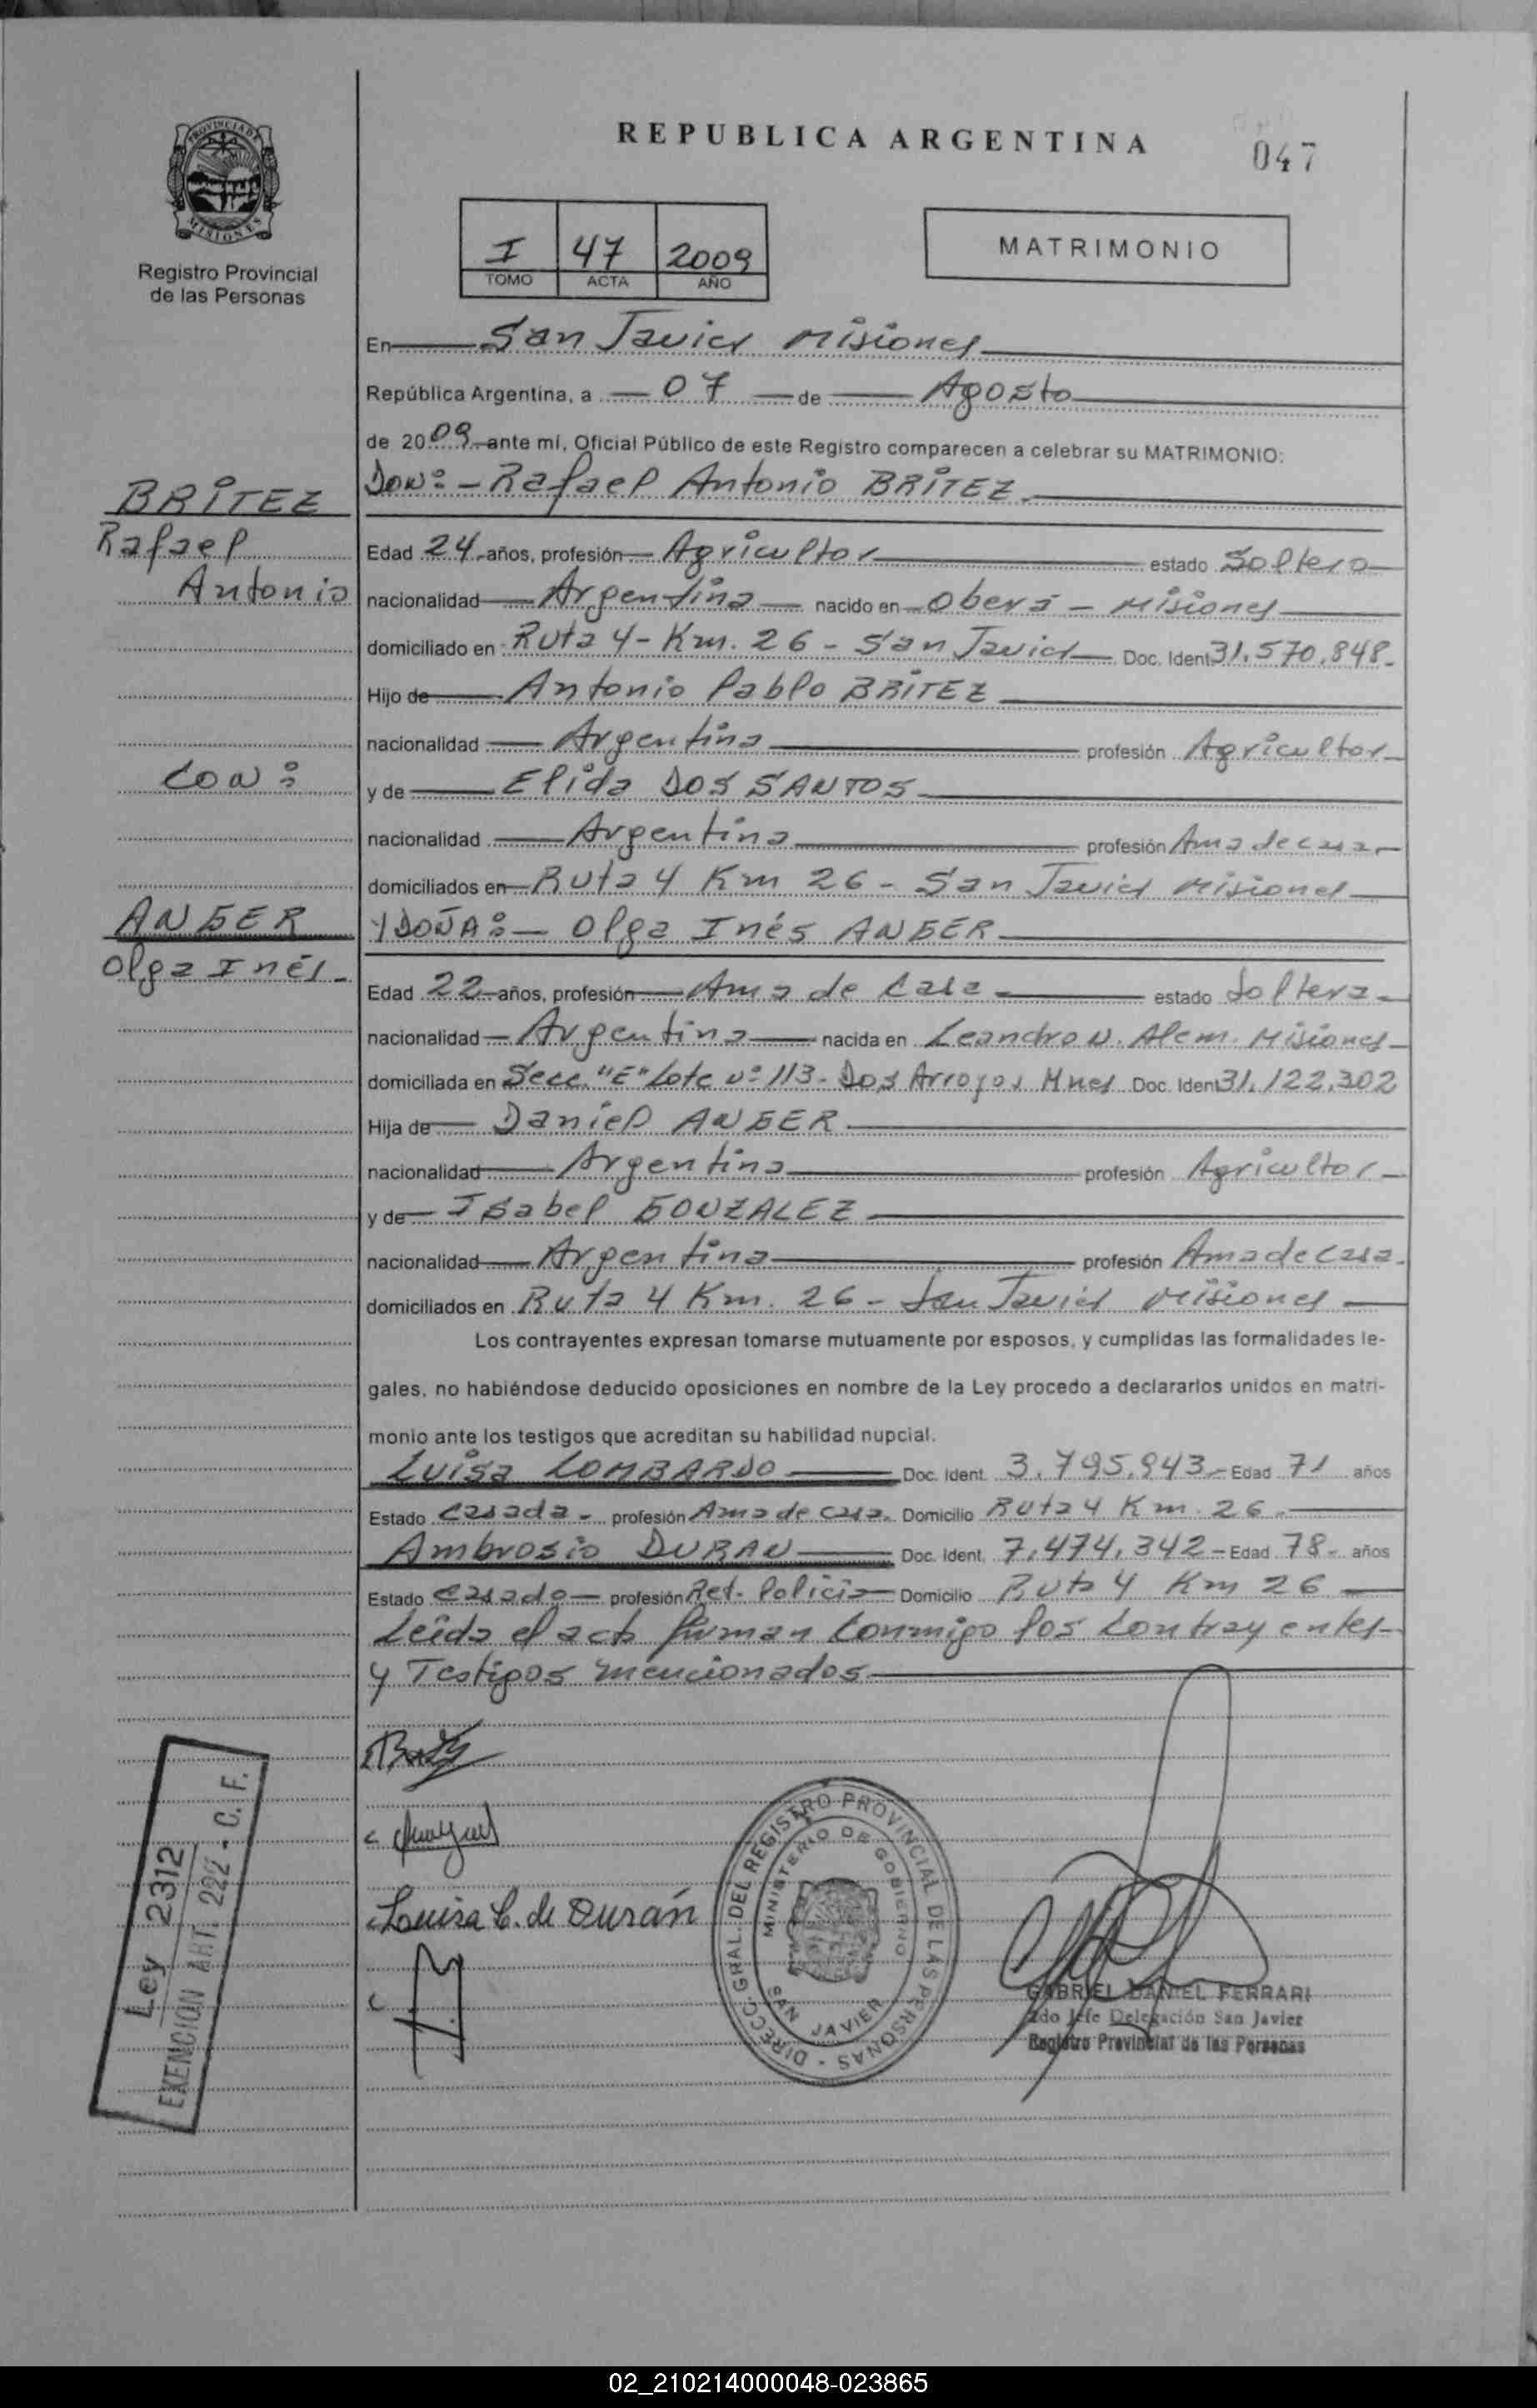 REPUBLICA ARGENTINA
047
PROVINCIA DE
MISIONES
Registro Provincial
de las Personas
I 47 2009
TOMO ACTA AÑO
MATRIMONIO
En San Javier Misiones
República Argentina, a 07 de Agosto
de 2009 ante mí, Oficial Público de este Registro comparecen a celebrar su MATRIMONIO:
BRITEZ
Rafael
Antonio
Con:
ANGER
Olga Inés.
DON: - Rafael Antonio BRITEZ
Edad 24 años, profesión Agricultor estado Soltero
nacionalidad Argentina nacido en Oberá - Misiones
domiciliado en Ruta 4 - Km. 26 - San Javier Doc. Ident 31.570.848.
Hijo de Antonio Pablo BRITEZ
nacionalidad Argentina profesión Agricultor
y de Elida DOS SANTOS
nacionalidad Argentina profesión Ama de casa
domiciliados en Ruta 4 Km 26 - San Javier Misiones
Y DOÑA: - Olga Inés ANGER
Edad 22 años, profesión Ama de Casa estado Soltera
nacionalidad Argentina nacida en Leandro N. Alem. Misiones
domiciliada en Secc. "E" Lote Nº 113 - Dos Arroyos Mnes Doc. Ident 31.122.302
Hija de Daniel ANGER
nacionalidad Argentina profesión Agricultor
y de Isabel GONZALEZ
nacionalidad Argentina profesión Ama de casa.
domiciliados en Ruta 4 Km. 26 - San Javier Misiones
Los contrayentes expresan tomarse mutuamente por esposos, y cumplidas las formalidades le-
gales, no habiéndose deducido oposiciones en nombre de la Ley procedo a declararlos unidos en matri-
monio ante los testigos que acreditan su habilidad nupcial.
Luisa LOMBARDO Doc. Ident. 3.795.943 - Edad 71 años
Estado Casada - profesión Ama de casa. Domicilio Ruta 4 Km. 26.
Ambrosio DURAN Doc. Ident. 7.474.342 - Edad 78 - años
Estado Casado profesión Ret. Policia Domicilio Ruta 4 Km 26
Leída el acta firman conmigo los contrayentes
y Testigos mencionados.
Louisa L. de Durán
A.D
DIRECC. GRAL. DEL REGISTRO PROVINCIAL DE LAS PERSONAS -
MINISTERIO DE GOBIERNO
SAN JAVIER
GABRIEL DANIEL FERRARI
2do Jefe Delegación San Javier
Registro Provincial de las Personas
Ley 2312
EXENCION ART. 222 - C. F.
02_210214000048-023865